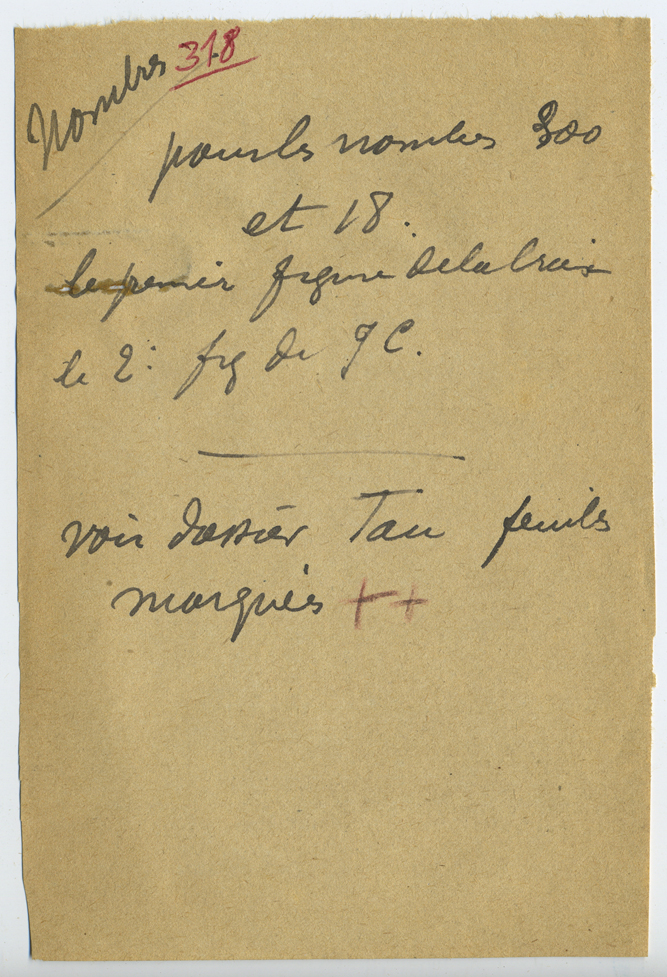 Nombres 318
pour les nombres 300
et 18.
le premier figure de la Croix
le 2: fig de J C.
voir dossier Tau feuilles
marqués ++